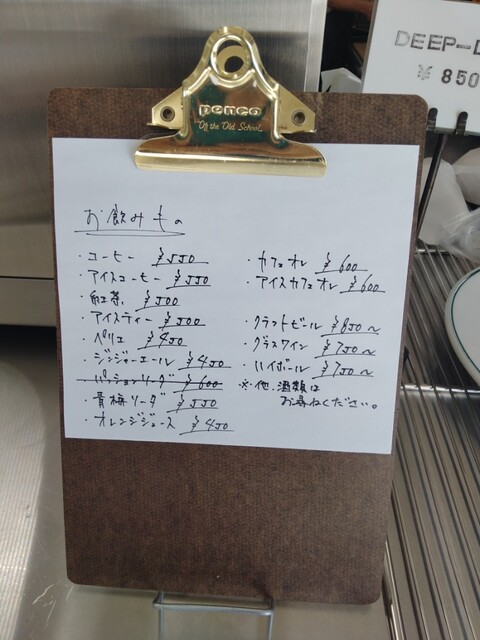 penco
"Of the Old School"
DEEP-D
¥850
お飲みもの
・コーヒー ¥550
・アイスコーヒー ¥550
・紅茶 ¥500
・アイスティー ¥500
・ペリエ ¥450
・ジンジャーエール ¥450
・パッションソーダ ¥600
・青梅ソーダ ¥550
・オレンジジュース ¥450
・カフェオレ ¥600
・アイスカフェオレ ¥600
・クラフトビール ¥850〜
・グラスワイン ¥750〜
・ハイボール ¥750〜
※他、酒類は
お尋ねください。